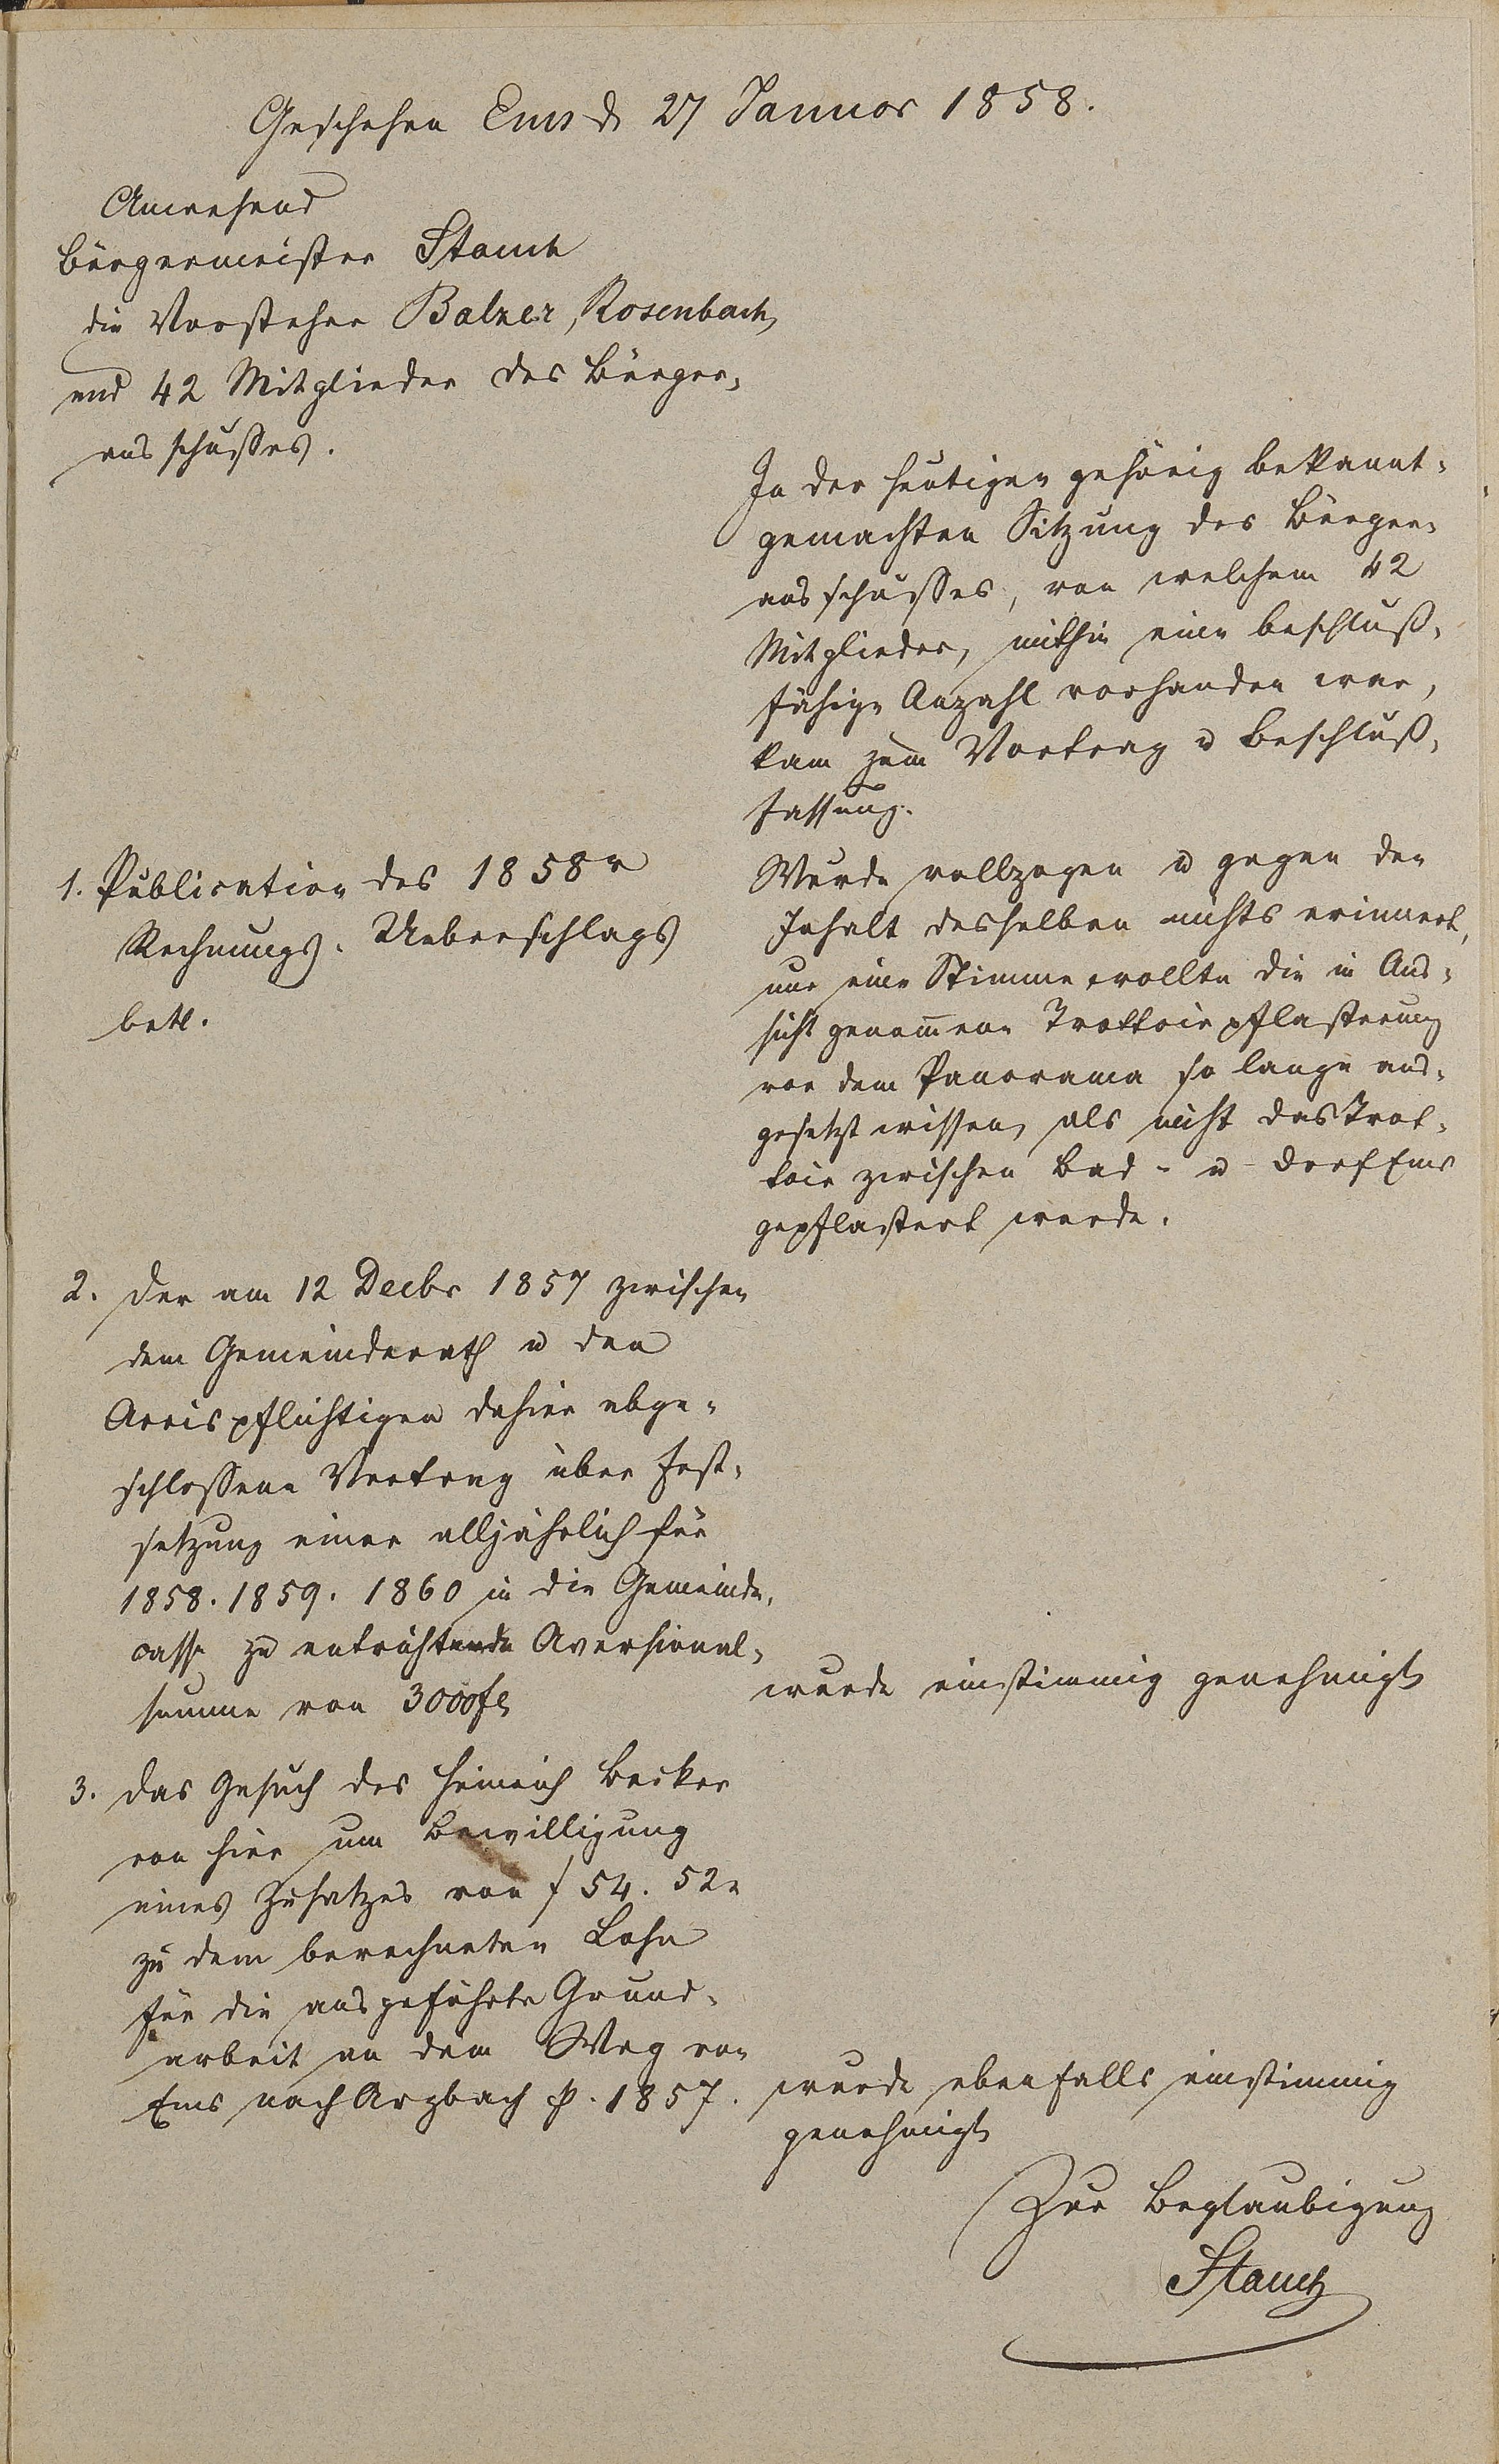 Geschehen Ems d 27 Januar 1858.
Anwesend
Bürgermeister Stauch
die Vorsteher Balzer, Rosenbach
und 42 Mitglieder des Bürger-
ausschußes.
In der heutigen gehörig bekannt-
gemachten Sitzung des Bürger-
ausschußes, von welchem 42
Mitglieder, mithin eine beschluß-
fähige Anzahl vorhanden war,
kam zum Vortrag u Beschluß-
fassung.
1. Publication des 1858r
Rechnungs-Ueberschlags
betr.
Wurde vollzogen u gegen den
Inhalt desselben nichts erinnert,
nur eine Stimme wollte die in Aus-
sicht genom̄ene Trottoirpflasterung
vor dem Panorama so lange aus-
gesetzt wissen, als nicht das Trot-
toir zwischen Bad- u Dorf Ems
gepflastert werde.
2. Der am 12 Decbr 1857 zwischen
dem Gemeinderath u den
Accispflichtigen dahier abge-
schlossene Vertrag über Fest-
setzung einer alljährlich für
1858. 1859. 1860 in die Gemeinde-
casse zu entrichtende Aversional-
summe von 3000 fl
wurde einstimmig genehmigt
3. Das Gesuch des Heinrich Becker
von hier um Bewilligung
eines Zusatzes von f 54. 52
zu dem berechneten Lohn
für die ausgeführte Grund-
arbeit an dem Weg von
Ems nach Arzbach p. 1857.
wurde ebenfalls einstimmig
genehmigt
Zur Beglaubigung
Stauch